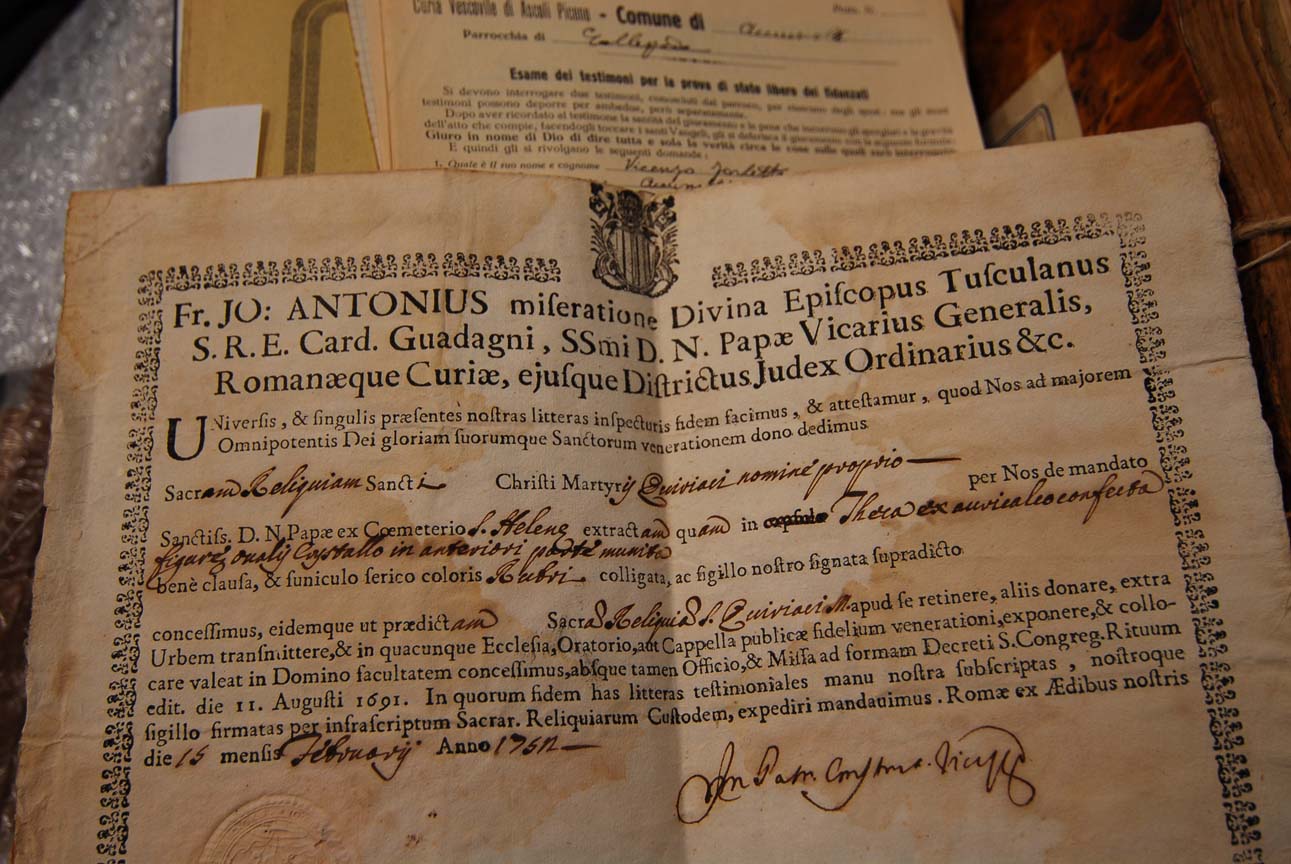 Curia Vescovile di Ascoli Piceno - Comune di
Parrocchia di
Esame dei testimoni per la prova di stato libero dei fidanzati
Si devono interrogare due testimoni, conosciuti dal parroco, per ciascuno degli sposi; ma gli stessi
testimoni possono deporre per ambedue, però separatamente.
Dopo aver ricordato al testimone la santità del giuramento e le pene che incorrono gli spergiuri e la gravità
dell'atto che compie, facendogli toccare i santi Vangeli, gli si deferisca il giuramento con la seguente formula:
Giuro in nome di Dio di dire tutta e sola la verità circa le cose sulle quali sarò interrogato
E quindi gli si rivolgano le seguenti domande:
1. Quale è il suo nome e cognome Vicenzo
Fr. JO: ANTONIUS miſeratione Divina Epiſcopus Tuſculanus
S. R. E. Card. Guadagni, SSmi D. N. Papæ Vicarius Generalis,
Romanæque Curiæ, ejuſque Diſtrictus Judex Ordinarius &c.
UNiverſis, & ſingulis præſentes noſtras litteras inſpecturis fidem facimus, & atteſtamur, quod Nos ad majorem
Omnipotentis Dei gloriam ſuorumque Sanctorum venerationem dono dedimus
Sacram Reliquiam Sancti Chriſti Martyris Quiriaci nomine proprio per Nos de mandato
Sanctiſs. D. N. Papæ ex Cœmeterio S. Helenę extractam quam in Theca ex auricalco confecta
figurę ovalis Crystallo in anteriori parte munita
benè clauſa, & funiculo ſerico coloris Rubri colligata, ac ſigillo noſtro ſignata ſupradicto
conceſſimus, eidemque ut prædictam Sacram Reliquiam S. Quiriaci M. apud ſe retinere, aliis donare, extra
Urbem tranſmittere, & in quacunque Eccleſia, Oratorio, aut Cappella publicæ fidelium venerationi, exponere, & collo-
care valeat in Domino facultatem conceſſimus, abſque tamen Officio, & Miſſa ad formam Decreti S. Congreg. Rituum
edit. die 11. Auguſti 1691. In quorum fidem has litteras teſtimoniales manu noſtra ſubſcriptas, noſtroque
ſigillo firmatas per infraſcriptum Sacrar. Reliquiarum Cuſtodem, expediri mandavimus. Romæ ex Ædibus noſtris
die 15 mensis Februarij Anno